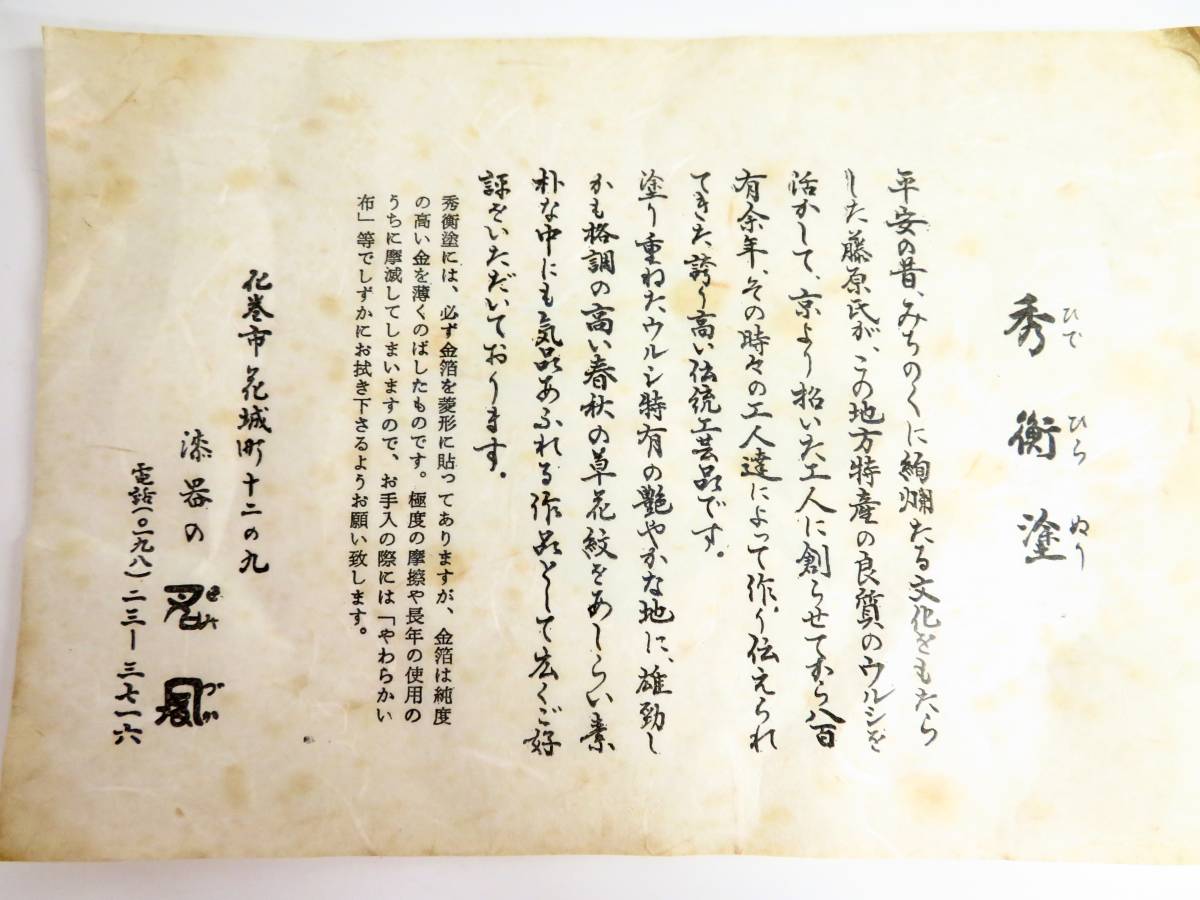 ひで ひら ぬり
秀衡塗
平安の昔、みちのくに絢爛たる文化をもたら
した藤原氏が、この地方特産の良質のウルシを
活かして、京より招いた工人に創らせてから八百
有余年、その時々の工人達によって作り伝えられ
てきた誇り高い伝統工芸品です。
塗り重ねたウルシ特有の艶やかな地に、雄勁し
かも格調の高い春秋の草花紋をあしらい素
朴な中にも気品あふれる作品として広くご好
評をいただいております。
秀衡塗には、必ず金箔を菱形に貼ってありますが、金箔は純度
の高い金を薄くのばしたものです。極度の摩擦や長年の使用の
うちに摩滅してしまいますので、お手入の際には「やわらかい
布」等でしずかにお拭き下さるようお願い致します。
花巻市花城町十二の九
漆器の
電話(〇一九八)二三ー三七一六